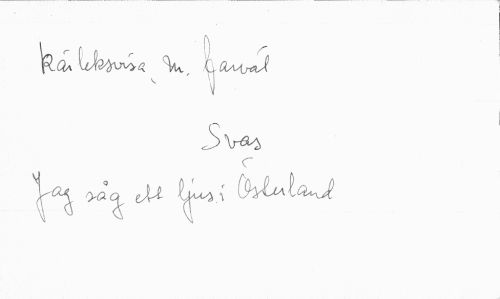 Kärleksvisa, m. farväl
Svas
Jag såg ett ljus i Österland